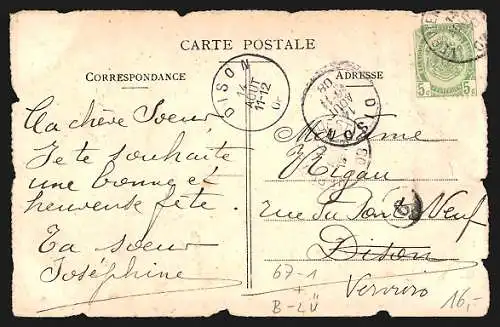 CARTE POSTALE
CORRESPONDANCE
ADRESSE
DISON
14
AOUT
11-12
DISON
5c 5c
Ma chère Soeur
Je te souhaite
une bonne et
heureuse fête.
Ta soeur
Joséphine
Madame
Rigau
rue du Pont Neuf
Dison
67-1
+
B-LÜ
16,-